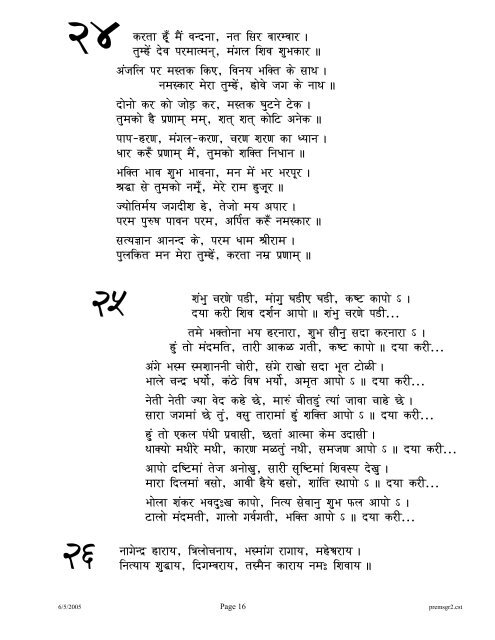 २४
करता हूँ मैं वन्दना, नत सिर बारम्बार ।
तुम्हें देव परमात्मन्, मंगल शिव शुभकार ॥
अंजलि पर मस्तक किए, विनय भक्ति के साथ ।
नमस्कार मेरा तुम्हें, होवे जग के नाथ ॥
दोनो कर को जोड़ कर, मस्तक घुटने टेक ।
तुमको है प्रणाम् मम्, शत् शत् कोटि अनेक ॥
पाप-हरण, मंगल-करण, चरण शरण का ध्यान ।
धार करूँ प्रणाम् मैं, तुमको शक्ति निधान ॥
भक्ति भाव शुभ भावना, मन में भर भरपूर ।
श्रद्धा से तुमको नमूँ, मेरे राम हुजूर ॥
ज्योतिर्मय जगदीश हे, तेजो मय अपार ।
परम पुरुष पावन परम, अर्पित करूँ नमस्कार ॥
सत्यज्ञान आनन्द के, परम धाम श्रीराम ।
पुलकित मन मेरा तुम्हें, करता नम्र प्रणाम् ॥
२५
शंभु चरणे पडी, मांगु घडीए घडी, कष्ट कापो ऽ ।
दया करी शिव दर्शन आपो ॥ शंभु चरणे पडी...
तमे भक्तोना भय हरनारा, शुभ सौनु सदा करनारा ऽ ।
हुं तो मंदमति, तारी आकळ गती, कष्ट कापो ॥ दया करी...
अंगे भस्म स्मशाननी चोरी, संगे राखो सदा भूत टोळी ।
भाले चन्द्र धर्यो, कंठे विष भर्यो, अमृत आपो ऽ ॥ दया करी...
नेती नेती ज्या वेद कहे छे, मारुं चीतडुं त्यां जावा चाहे छे ।
सारा जगमां छे तुं, वसु तारामां हुं शक्ति आपो ऽ ॥ दया करी...
हुं तो एकल पंथी प्रवासी, छतां आत्मा केम उदासी ।
थाक्यो मथीरे मथी, कारण मळतुं नथी, समजण आपो ऽ ॥ दया करी...
आपो दष्टिमां तेज अनोखु, सारी सृष्टिमां शिवरुप देखु ।
मारा दिलमां वसो, आवी हैये हसो, शांति स्थापो ऽ ॥ दया करी...
भोला शंकर भवदुःख कापो, नित्य सेवानु शुभ फल आपो ऽ ।
टालो मंदमती, गालो गर्वगती, भक्ति आपो ऽ ॥ दया करी...
२६
नागेन्द्र हाराय, त्रिलोचनाय, भस्मांग रागाय, महेश्वराय ।
नित्याय शुद्धाय, दिगम्बराय, तस्मैन काराय नमः शिवाय ॥
6/5/2005 Page 16 premsgr2.cst